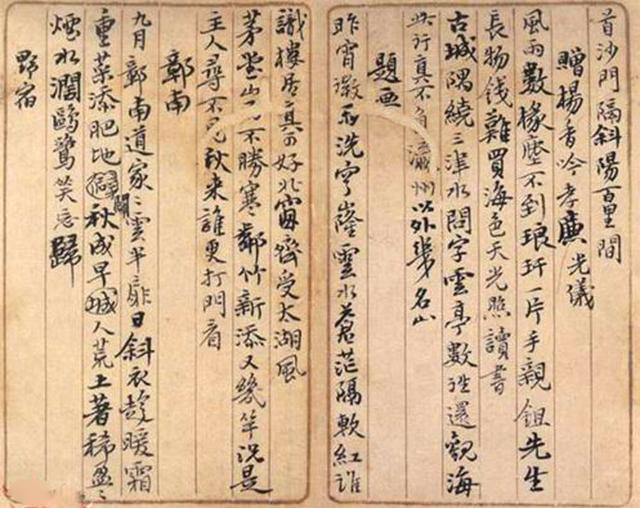 首沙門隔斜陽百里間
贈楊香吟孝廉光儀
風雨數椽塵不到琅玕一片手親鉏先生
長物錢難買海色天光照讀書
古城隅繞三津水問字雲亭數往還觀海
此行真不負瀛州以外幾名山
題画
昨宵澂雨洗穹窿雲水蒼茫隔軟紅誰
識樓居真可好北窗齊受太湖風
茅堂不勝寒鄰竹新添又幾竿況是
主人尋不見秋来誰更打門看
郭南
九月郭南道家〻雲半扉日斜衣趁暖霜
重菜添肥地秋成早人荒土著稀盈〻
煙水濶鷗鷺笑忘歸
野宿